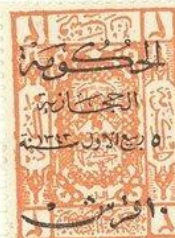 الحكومة
الحجازية
٥ ربيع الاول سنة ١٣٤٣
١٠ قروش